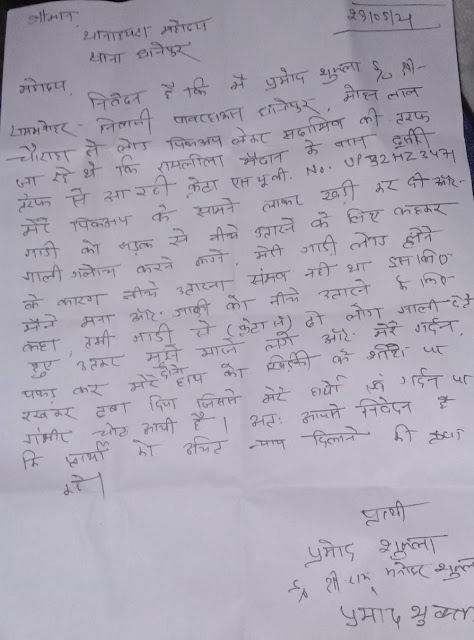 श्रीमान, 23/05/21
थानाध्यक्ष महोदय
थाना धानेपुर
महोदय,
निवेदन है कि मैं प्रमोद शुक्ला S/o श्री-
निवासी धानेपुर,
चौराहा से लोड पिकअप लेकर की तरफ
जा रहे थे कि रामलीला मैदान के पास दूसरी
तरफ से आ रही क्रेटा एस यू वी. No. UP32HZ3471
मेरे पिकअप के सामने लाकर खड़ी कर दी और-
गाड़ी को सड़क से नीचे उतारने के लिए कहकर
गाली गलौज करने लगे, मेरी गाड़ी लोड होने
के कारण नीचे उतारना संभव नहीं था इसलिए
मैंने मना और गाड़ी को नीचे उतारने के लिए
कहा, तभी गाड़ी से (क्रेटा से) दो लोग गाली देते
हुए उतरकर मुझे मारने लगे और मेरे गर्दन,
पकड़ कर मेरे दोनों हाथ को खिड़की के शीशा पर
रखकर दबा दिया जिससे मेरे हाथों एवं गर्दन पर
गंभीर चोट आयी है। अतः आपसे निवेदन है
कि प्रार्थी को उचित न्याय दिलाने की कृपा
करें।
प्रार्थी
प्रमोद शुक्ला
S/o श्री राम मनोहर शुक्ला
प्रमोद शुक्ला